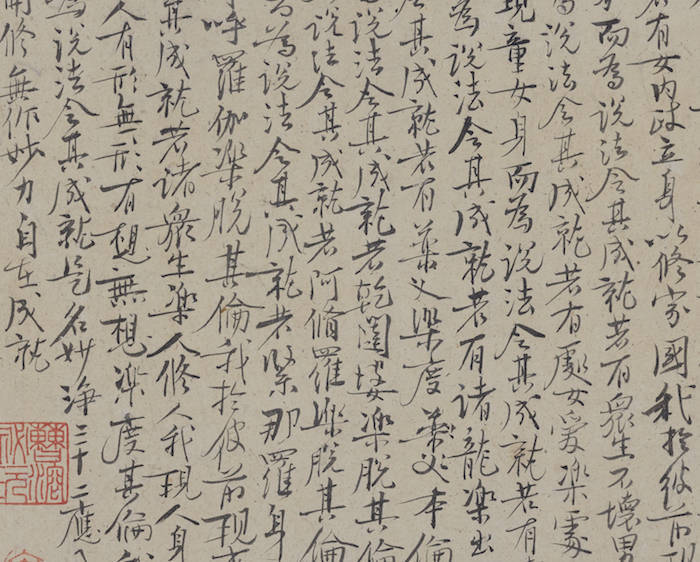 若有女內政立身以修家國我於彼前現
而為說法令其成就若有眾生不壞男
說法令其成就若有處女愛樂處
現童女身而為說法令其成就若有
為說法令其成就若有諸龍樂出
其成就若有藥叉樂度藥叉本倫
說法令其成就若乾闥婆樂脫其倫
說法令其成就若阿脩羅樂脫其倫
為說法令其成就若緊那羅身
呼羅伽樂脫其倫我於彼前現
其成就若諸眾生樂人修人我現人身
人有形無形有想無想樂度其倫我
為說法令其成就是名妙淨三十二應
聞修無作妙力自在成就